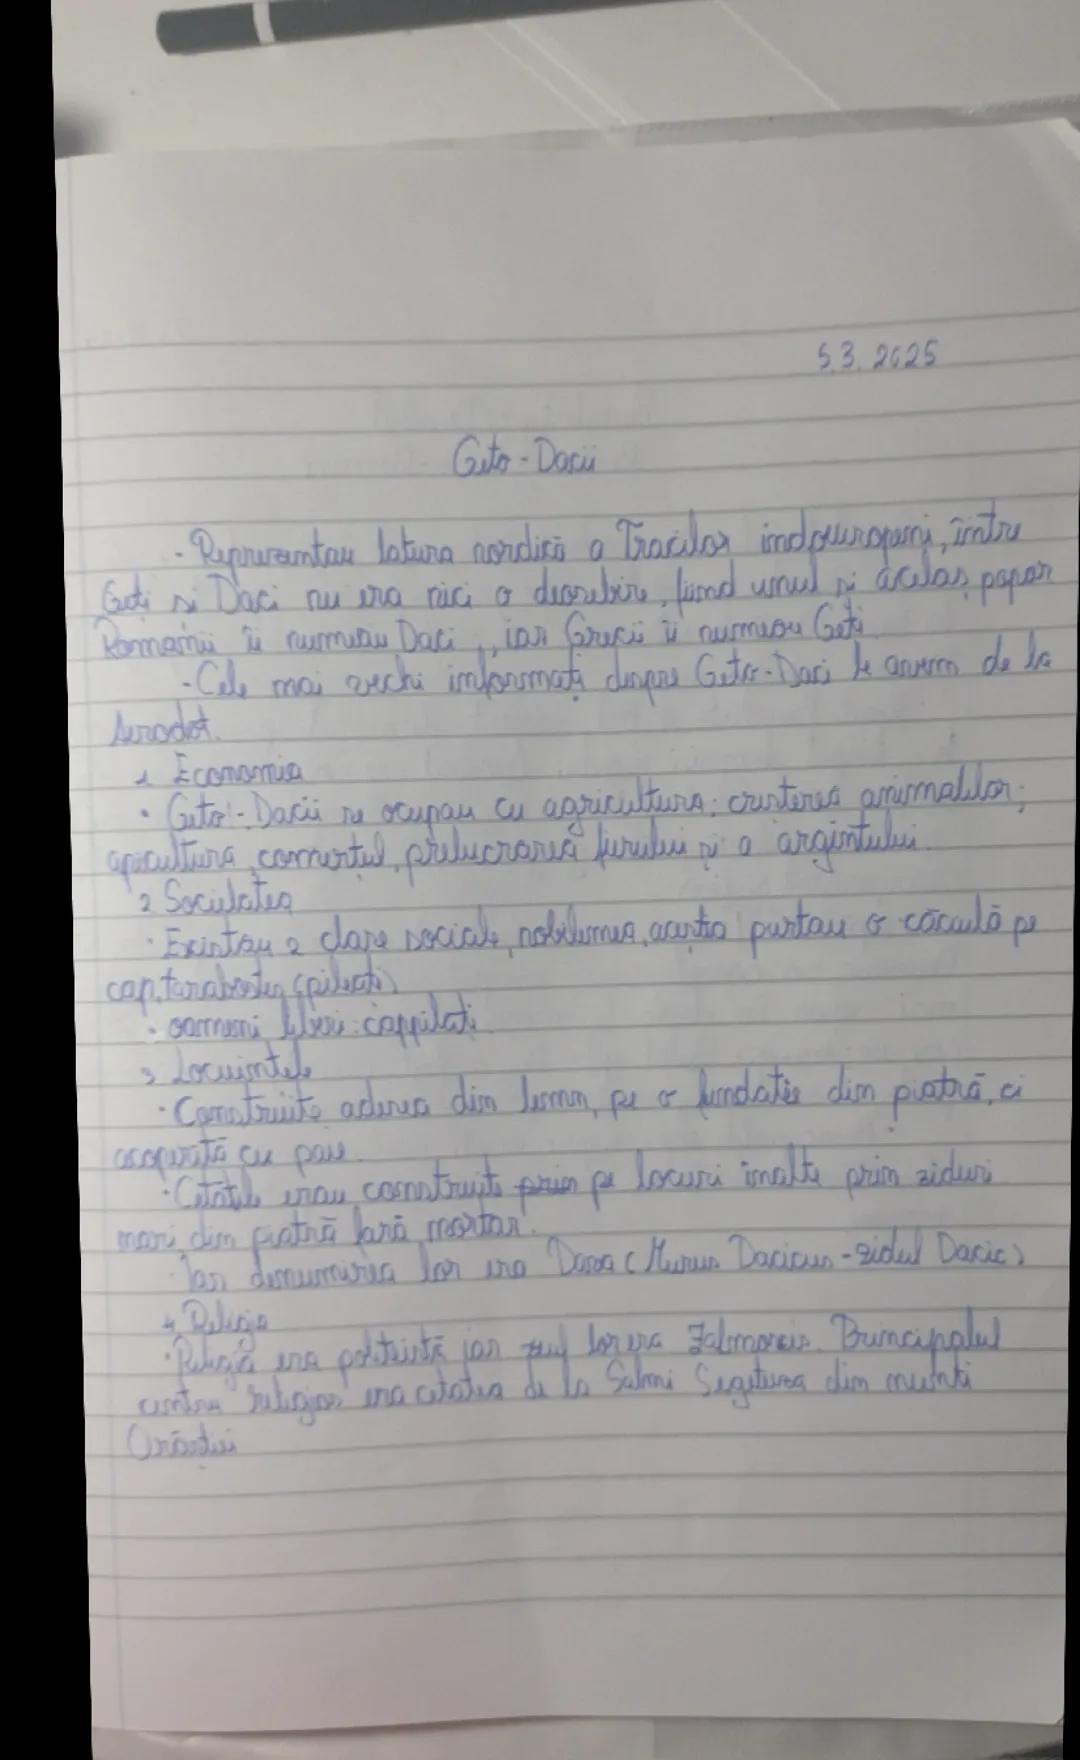 5.3.2025
Geto-Dacii
- Reprezentau latura nordică a Tracilor indoeuropeni, între
Geți și Daci nu era nici o deosebire, fiind unul și acelaș popor
Romanii îi numeau Daci, iar Grecii îi numeau Geți
- Cele mai vechi informați despre Geto-Daci le avem de la
Herodot.
1 Economia
• Geto-Dacii se ocupau cu agricultura; creșterea animalelor;
apicultura, comerțul, prelucrarea ferului și a argintului.
2 Societatea
• Existau 2 clase sociale, nobilimea, aceștia purtau o căciulă pe
cap, tarabostes (pileati)
• oameni liberi: cappilati
3 Locuintele
• Construite adesea din lemn, pe o fundație din piatră, ci
acoperită cu paie.
• Cetatile erau construite prin pe locuri inalte prin ziduri
mari din piatră fară mortar.
Iar denumirea lor era Dava (Murus Dacicus - zidul Dacic)
4 Religia
• Religia era politeistă iar zeul lor era Zalmoxis. Principalul
centru religios era cetatea de la Sarmi Segetuza din munți
Orăștiei